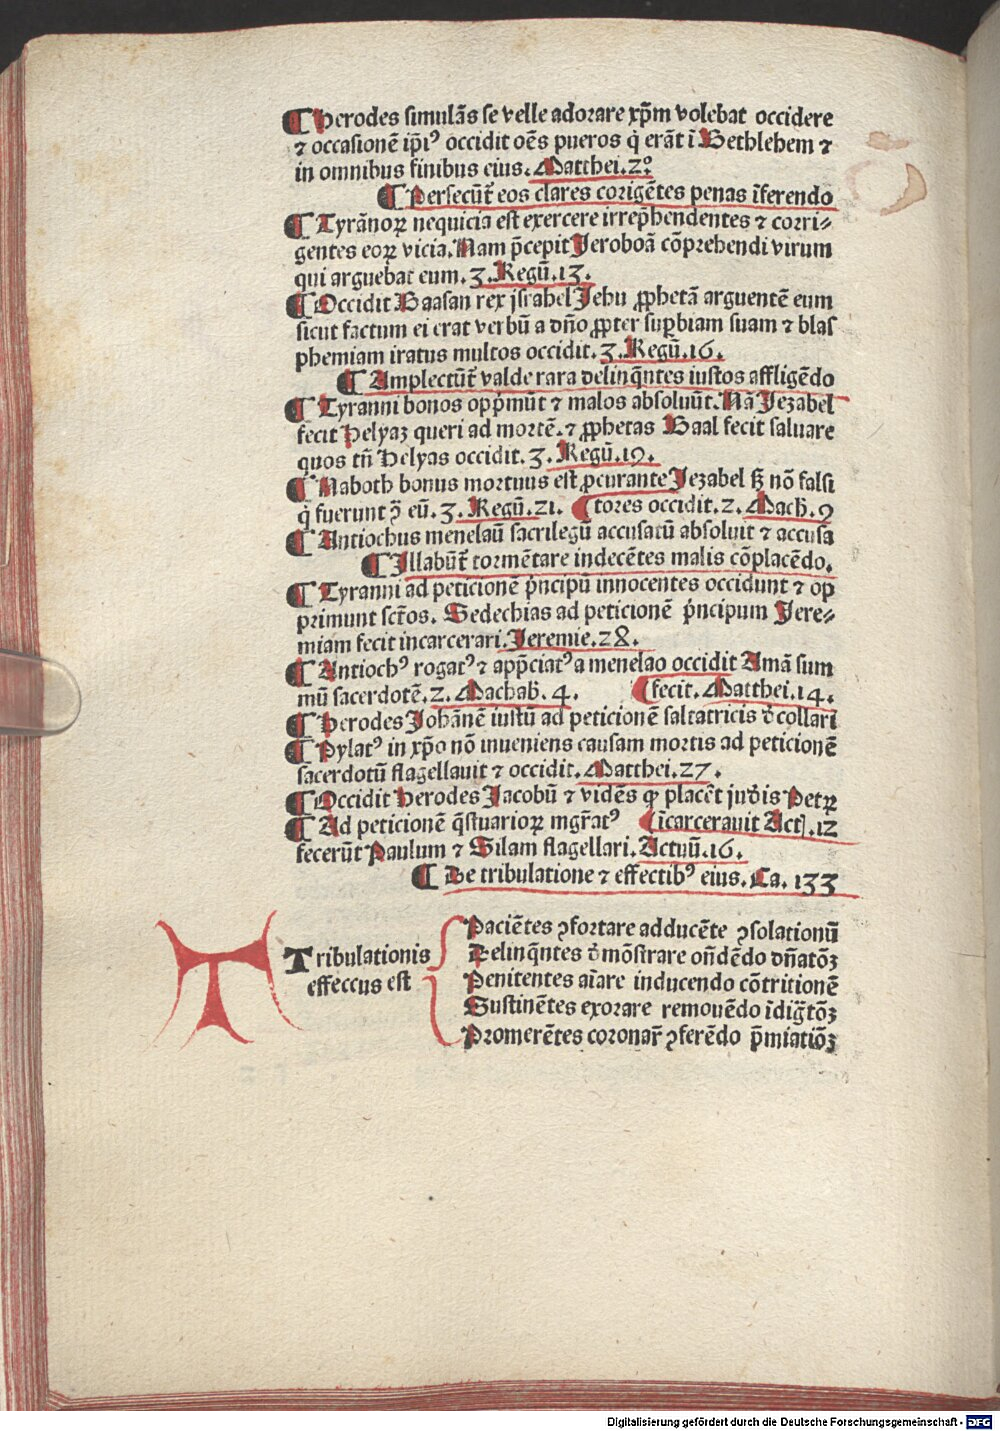 ¶ Herodes simulãs se velle adorare xp̃m volebat occidere
⁊ occasionẽ ip̃iꝰ occidit oẽs pueros q̇ erãt ĩ Bethlehem ⁊
in omnibus finibus eius. Matthei.2°
¶ Persecũt᷑ eos clares corigẽtes penas ĩferendo
¶ Tyrãnoꝝ nequicia est exercere irrep̃hendentes ⁊ corri⸗
gentes eoꝝ vicia. Nam p̃cepit Jeroboã cõprehendi virum
qui arguebat eum. 3. Regũ. 13.
¶ Occidit Baasan rex jsrahel Jehu ꝓphetã arguentẽ eum
sicut factum ei erat verbũ a dño ꝓpter suꝑbiam suam ⁊ blas
phemiam iratus multos occidit. 3. Regũ. 16.
¶ Amplectũt᷑ valde rara delinq̃ntes iustos affligẽdo
¶ Tyranni bonos opp̃mũt ⁊ malos absoluũt. Nã Jezabel
fecit Helyaz queri ad mortẽ. ⁊ ꝓphetas Baal fecit saluare
quos tñ Helyas occidit. 3. Regũ. 19.
¶ Naboth bonus mortuus est ꝓcurante Jezabel ß nõ falsi
q̇ fuerunt ꝯ̃ eũ. 3. Regũ. 21. ( tores occidit. 2. Mach̃. 9
¶ Antiochus menelaũ sacrilegũ accusatũ absoluit ⁊ accusa
¶ Illabũt᷑ tormẽtare indecẽtes malis cõplacẽdo.
¶ Tyranni ad peticionẽ p̓ncipũ innocentes occidunt ⁊ op
primunt sct̃os. Sedechias ad peticionẽ p̓ncipum Jere⸗
miam fecit incarcerari. Jeremie. 28.
¶ Antiochꝰ rogatꝰ ⁊ app̃ciatꝰ a menelao occidit Amã sum
mũ sacerdotẽ. 2. Machab̃. 4. ( fecit. Matthei. 14.
¶ Herodes Johãnẽ iustũ ad peticionẽ saltatricis d̓collari
¶ Pylatꝰ in xp̃o nõ inueniens causam mortis ad peticionẽ
sacerdotũ flagellauit ⁊ occidit. Matthei. 27.
¶ Occidit Herodes Jacobũ ⁊ vidẽs ꝙ placẽt jud̓is Petꝝ
¶ Ad peticionẽ q̃stuarioꝝ mgr̃atꝰ ( ĩcarcerauit Actꝭ. 12
fecerũt Paulum ⁊ Silam flagellari. Actuũ. 16.
¶ De tribulatione ⁊ effectibꝰ eius. Ca. 133
T
Tribulationis
effeccus est
Paciẽtes ꝯfortare adducẽte ꝯsolationũ
Delinq̃ntes d̓mõstrare oñdẽdo dñatõꝫ
Penitentes aĩare inducendo cõtritionẽ
Sustinẽtes exorare remouẽdo ĩdig̃tõꝫ
Promerẽtes coronar̃ ꝯferẽdo p̃miatiõꝫ
Digitalisierung gefördert durch die Deutsche Forschungsgemeinschaft - DFG